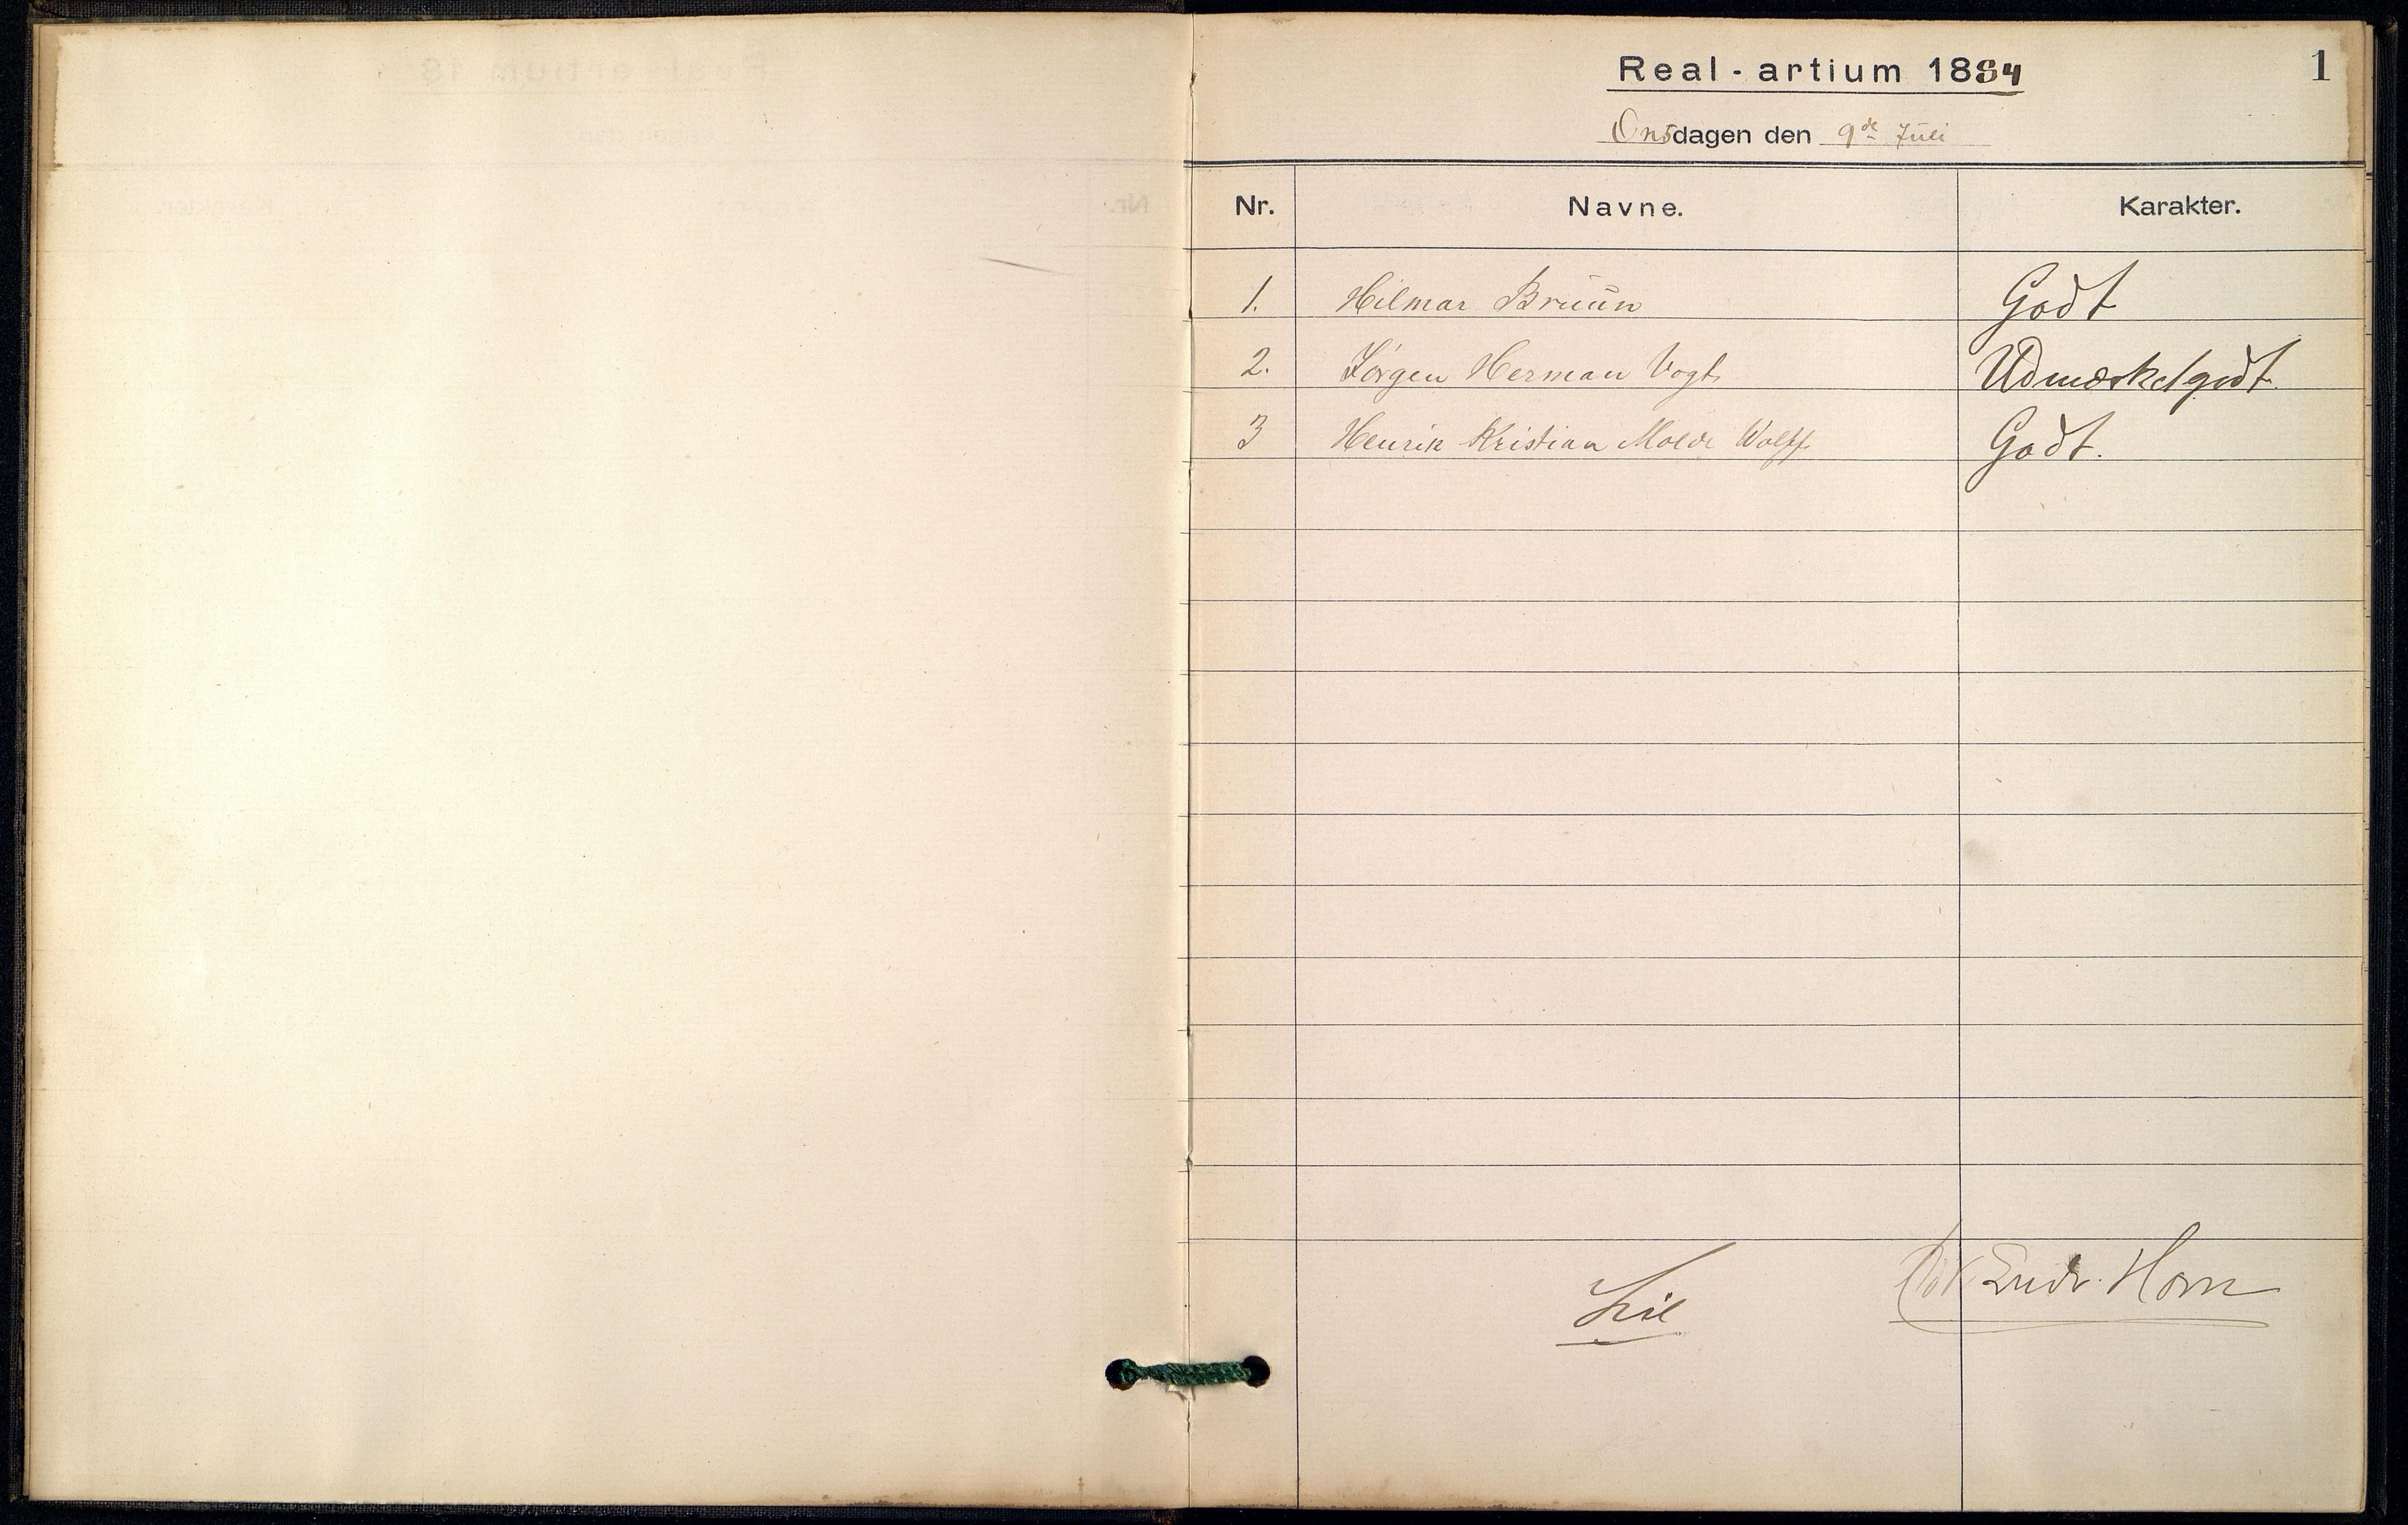 1
Real-artium 1884
Onsdagen den 9de Juli
Nr. Navne. Karakter.
1. Hilmar Bruun Godt
2. Jörgen Herman Vogt Udmærket godt.
3 Henrik Kristian Wolff Godt.
Horn